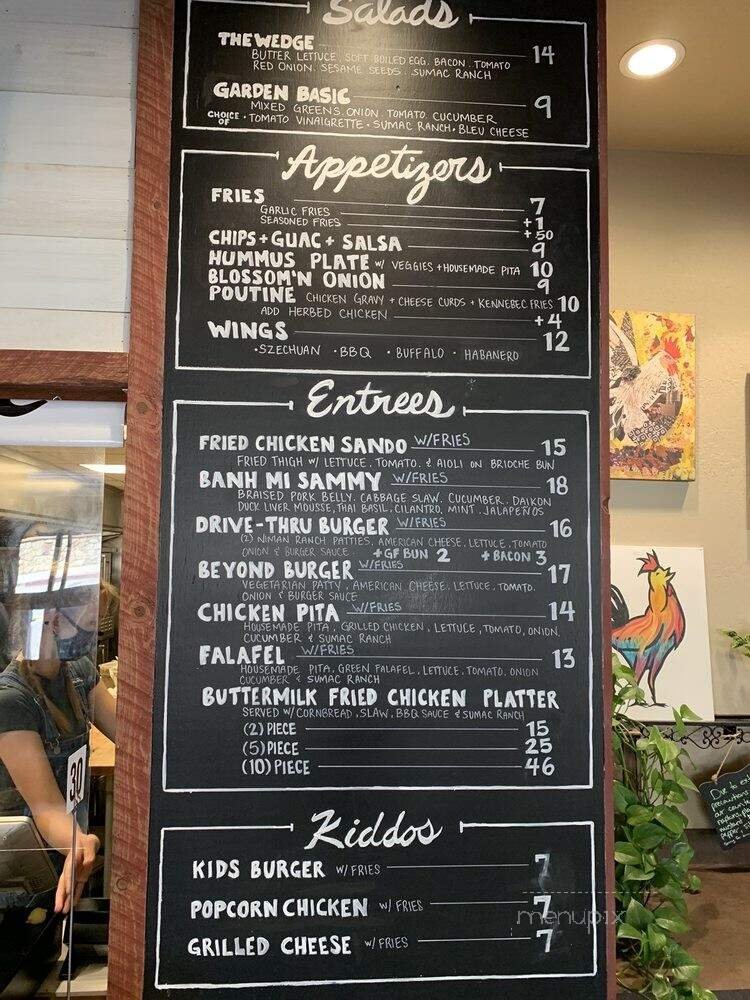 Salads
THE WEDGE 14
BUTTER LETTUCE. SOFT BOILED EGG. BACON. TOMATO
RED ONION. SESAME SEEDS. SUMAC RANCH
GARDEN BASIC 9
MIXED GREENS. ONION. TOMATO. CUCUMBER
CHOICE OF • TOMATO VINAIGRETTE • SUMAC RANCH • BLEU CHEESE
Appetizers
FRIES 7
GARLIC FRIES +1
SEASONED FRIES +50
CHIPS + GUAC + SALSA 9
HUMMUS PLATE W/ VEGGIES + HOUSEMADE PITA 10
BLOSSOM'N ONION 9
POUTINE CHICKEN GRAVY + CHEESE CURDS + KENNEBEC FRIES 10
ADD HERBED CHICKEN +4
WINGS 12
• SZECHUAN • BBQ • BUFFALO • HABANERO
Entrees
FRIED CHICKEN SANDO W/FRIES 15
FRIED THIGH W/ LETTUCE. TOMATO. & AIOLI ON BRIOCHE BUN
BANH MI SAMMY W/FRIES 18
BRAISED PORK BELLY. CABBAGE SLAW. CUCUMBER. DAIKON
DUCK LIVER MOUSSE, THAI BASIL. CILANTRO, MINT. JALAPEÑOS
DRIVE-THRU BURGER W/FRIES 16
(2) NIMAN RANCH PATTIES, AMERICAN CHEESE, LETTUCE, TOMATO
ONION & BURGER SAUCE +GF BUN 2 +BACON 3
BEYOND BURGER W/FRIES 17
VEGETARIAN PATTY, AMERICAN CHEESE. LETTUCE, TOMATO.
ONION & BURGER SAUCE
CHICKEN PITA W/FRIES 14
HOUSEMADE PITA, GRILLED CHICKEN, LETTUCE, TOMATO, ONION,
CUCUMBER & SUMAC RANCH
FALAFEL W/FRIES 13
HOUSEMADE PITA. GREEN FALAFEL, LETTUCE. TOMATO. ONION
CUCUMBER & SUMAC RANCH
BUTTERMILK FRIED CHICKEN PLATTER
SERVED W/ CORNBREAD, SLAW, BBQ SAUCE & SUMAC RANCH
(2) PIECE 15
(5) PIECE 25
(10) PIECE 46
Kiddos
KIDS BURGER W/ FRIES 7
POPCORN CHICKEN W/ FRIES 7
GRILLED CHEESE W/ FRIES 7
30
menupix